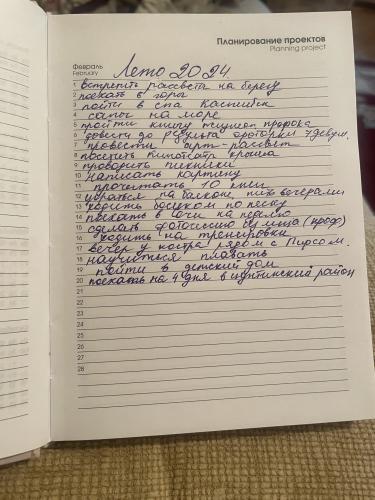 Планирование проектов
Planning project
Февраль
February
Лето 2024.
1 встретить рассветы на берегу
2 поехать в горы
3 пойти в спа
4 сапы на море
5 пройти книгу
6 довести до
7 провести арт-рассвет
8 посетить кинотеатр крыша
9 проводить пикники
10 написать картину
11 прочитать 10 книг
12 на балконе, вечерами
13 ходить босиком по песку
14 поехать в Сочи на неделю
15 сделать фотосессию у моря (проф)
16 ходить на тренировки
17 вечер у костра рядом с Пирсом.
18 научиться плавать
19 пойти в детский дом
20 поехать на 4 дня в район
21
22
23
24
25
26
27
28